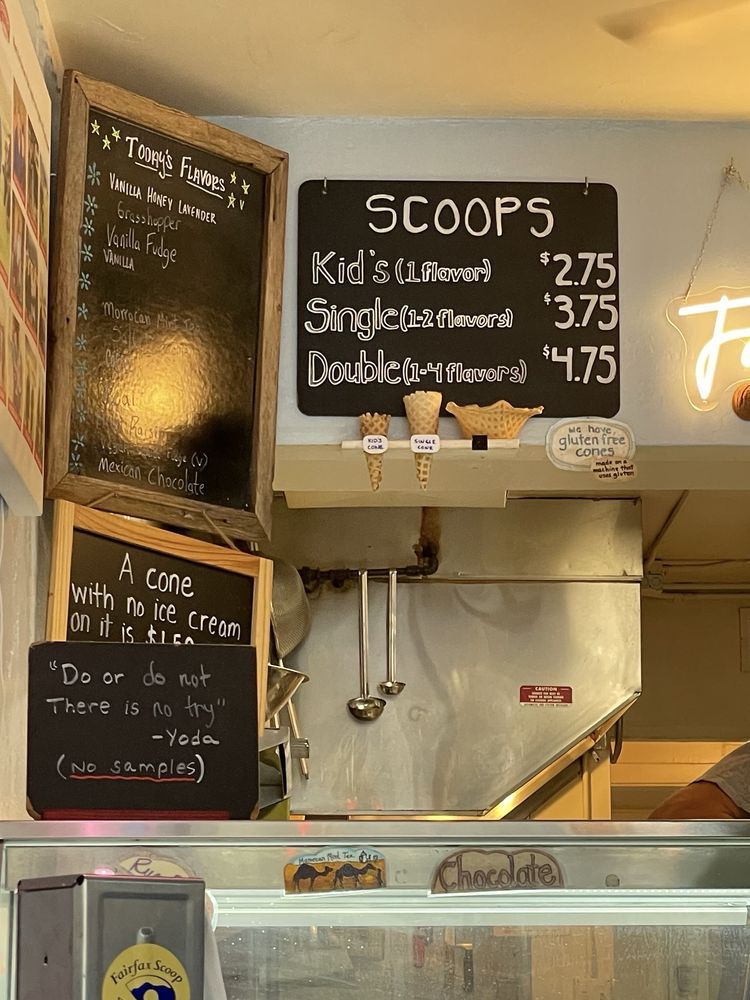 Today's Flavors
Vanilla Honey Lavender
Grasshopper
Vanilla Fudge
Vanilla
Morrocan Mint Tea
Raisin
(v)
Mexican Chocolate
SCOOPS
Kid's (1 flavor) $2.75
Single (1-2 flavors) $3.75
Double (1-4 flavors) $4.75
KID'S
CONE
SINGLE
CONE
we have
gluten free
cones
made on a
machine that
uses gluten
A cone
with no ice cream
on it is
"Do or do not
There is no try"
-Yoda
(No samples)
CAUTION
Moroccan Mint Tea
Chocolate
Fairfax Scoop